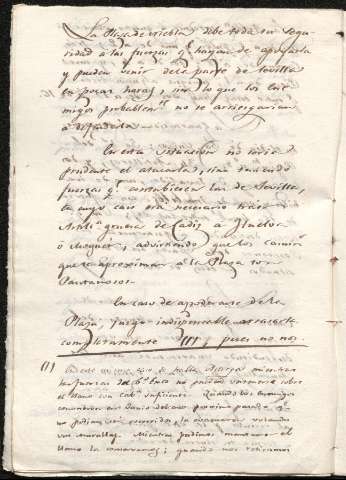 La Plaza de Niebla debe toda su segu-
ridad a las fuerzas q.e hayan de apoyarla
y pueden venir de la parte de Sevilla
en pocas horas, sin lo que los ene-
migos probablem.te no se arriesgarian
a defenderla.
En esta situacion no seria
prudente el atacarla, sino teniendo
fuerzas q.e contubiesen las de Sevilla,
en cuyo caso será necesario traer
Artill.a gruesa de Cadiz a Huelva
ó Moguer, advirtiendo que los camin.s
que se aproximan a la Plaza son
Pantanosos.
En caso de apoderarse de la
Plaza, juzgo indispensable arrasarla
completamente (1), pues no nos
(1) mientras
las fuerzas del 5.o no puedan
el llano con cab.a suficiente. Quando los enemigos
no podian ser socorridos, la evacuaron volando
sus murallas. Mientras pudimos mantener el
llano la conservamos; quando nos retiramos